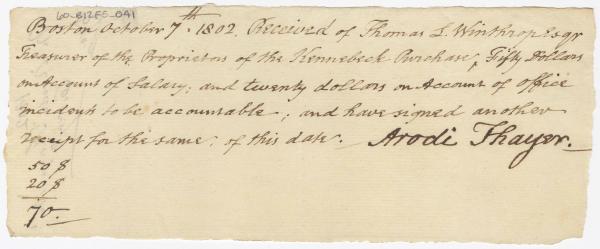 60-B12F5-041
Boston October 7th. 1802. Received of Thomas L. Winthrop Esqr
Treasurer of the Proprietors of the Kennebeck Purchase, Fifty Dollars
on Account of Salary; and twenty dollars on Account of office
incidents to be accountable; and have signed another
receipt for the same, of this date. Arodi Thayer.
50 $
20 $
70.